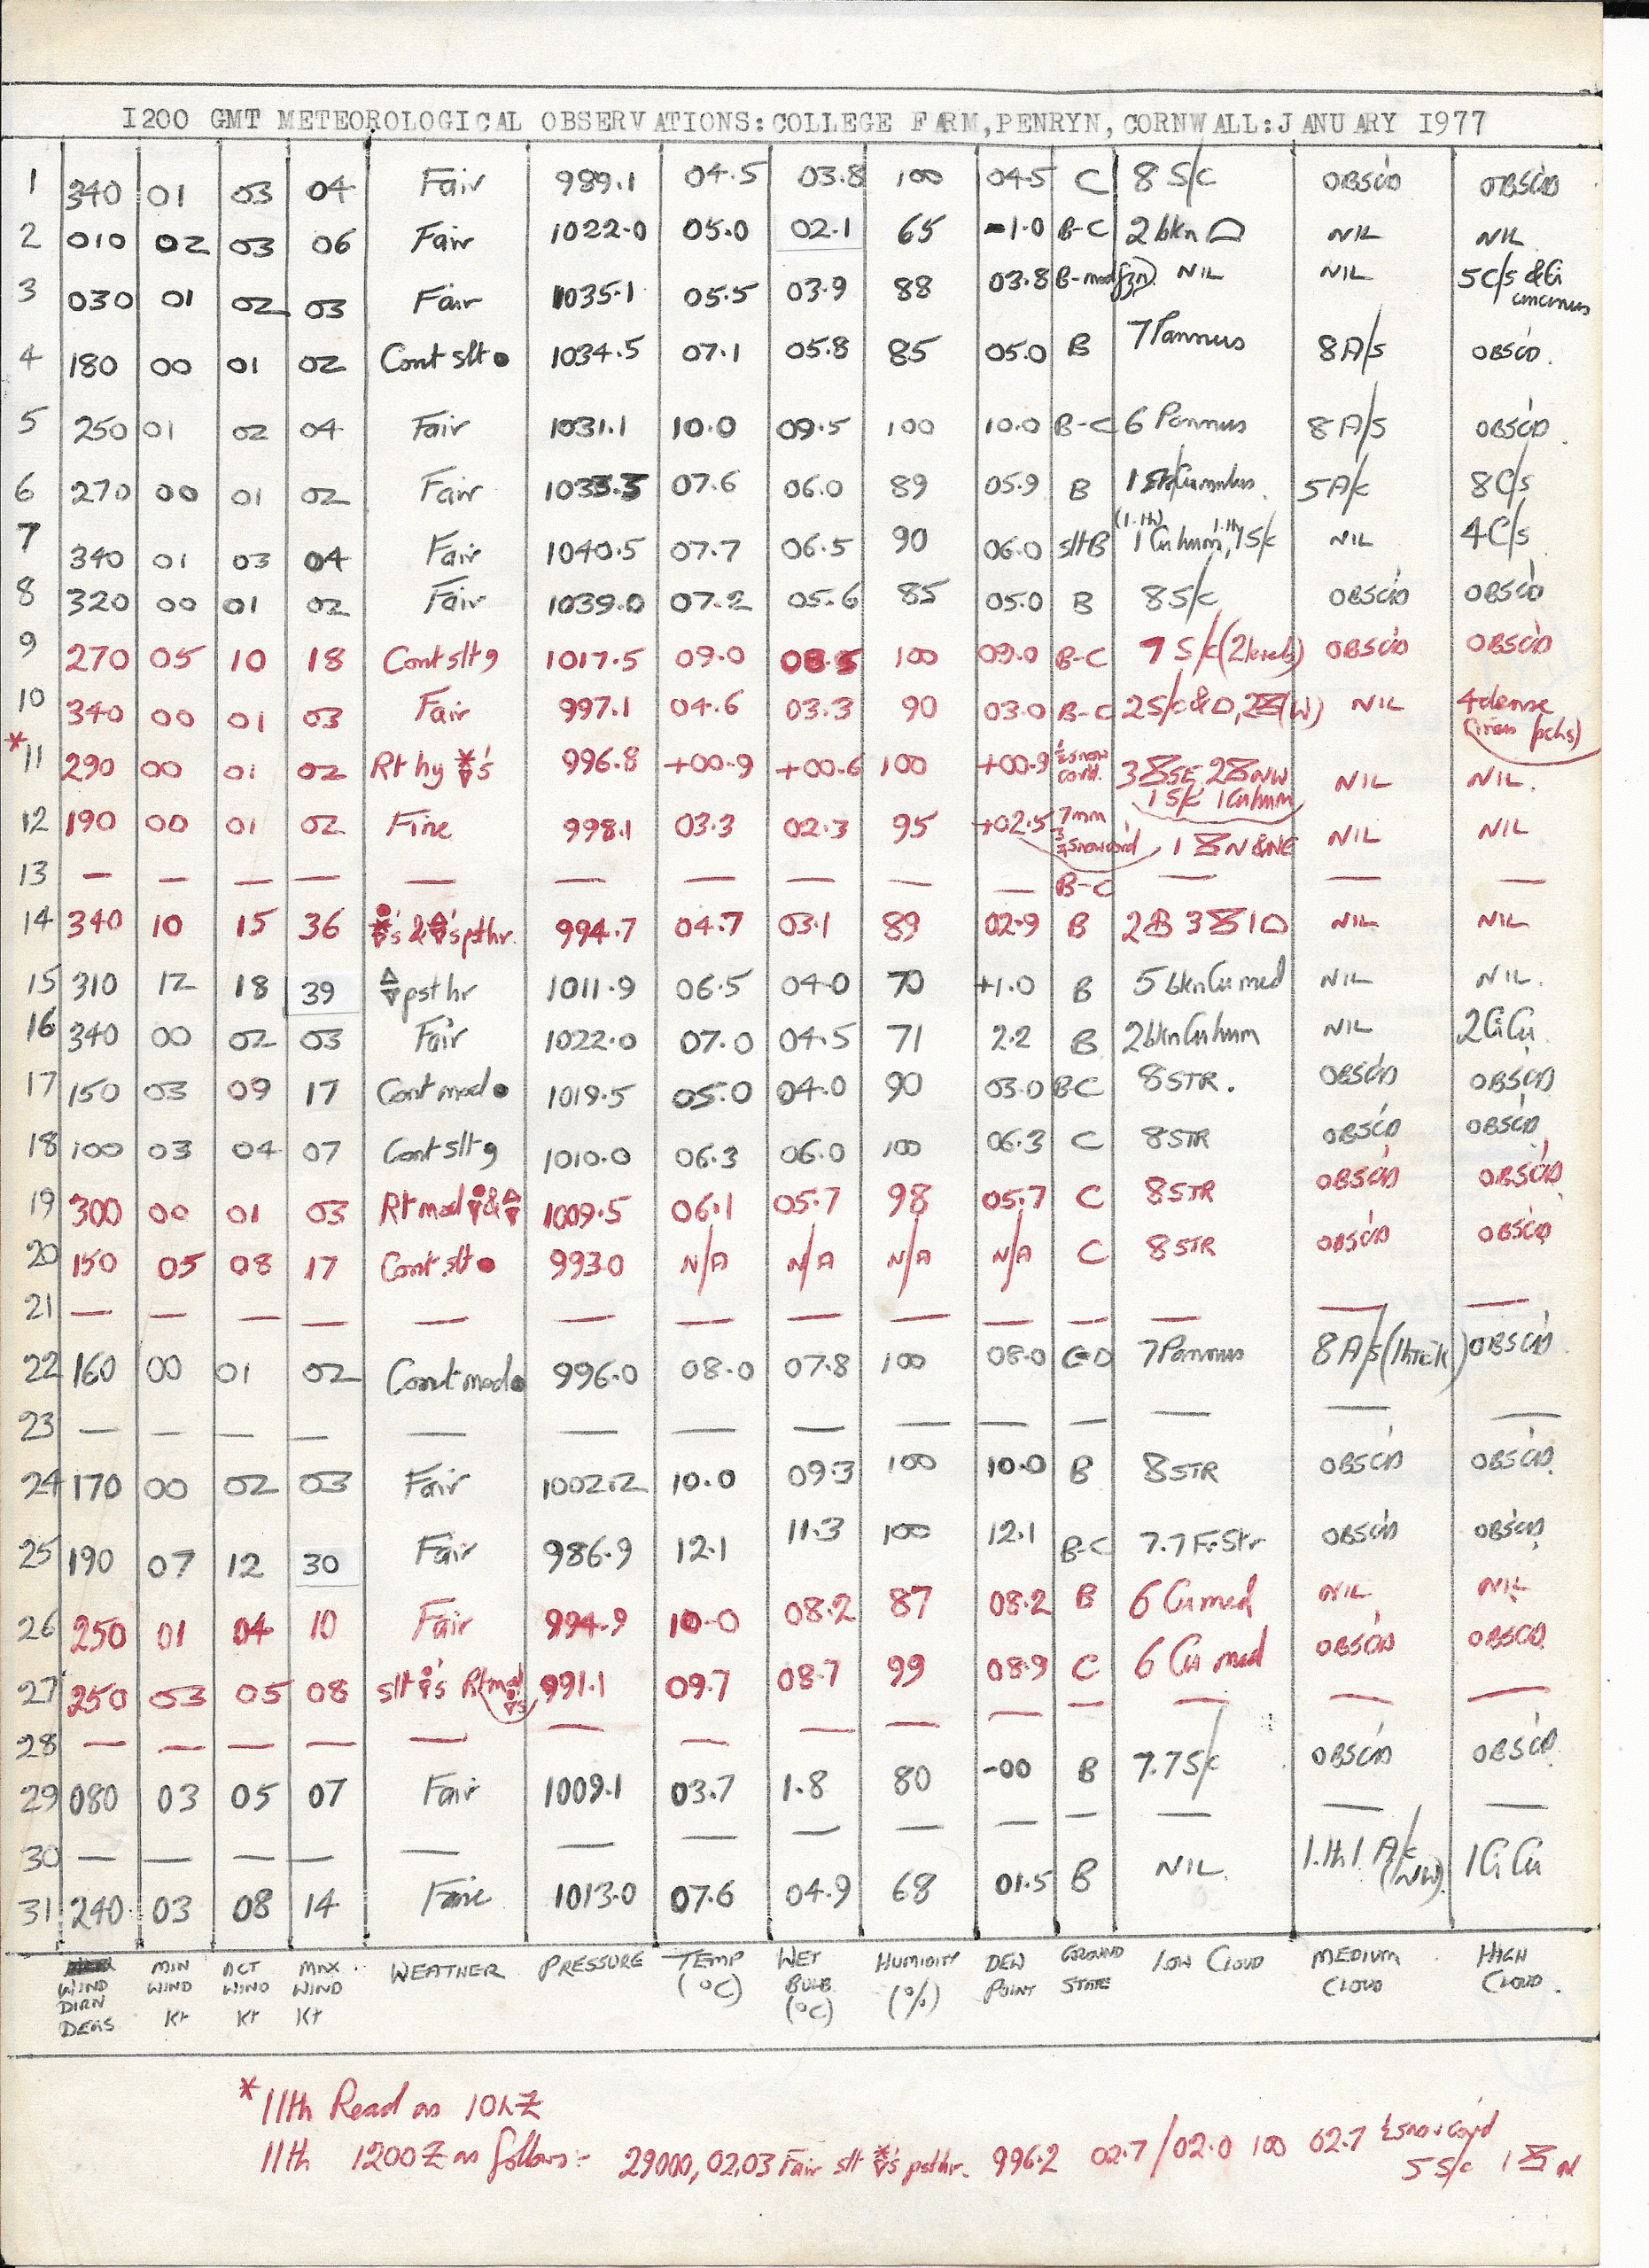 1200 GMT METEOROLOGICAL OBSERVATIONS:COLLEGE FARM,PENRYN,CORNWALL:JANUARY 1977
1 340 01 03 04 Fair 989.1 04.5 03.8 100 04.5 C 8 S/c OBSC'D OBSC'D
2 010 02 03 06 Fair 1022.0 05.0 02.1 65 -1.0 B-C 2 bkn NIL NIL
3 030 01 02 03 Fair 1035.1 05.5 03.9 88 03.8 B- NIL NIL 5 C/s & Ci
4 180 00 01 02 Cont slt ● 1034.5 07.1 05.8 85 05.0 B 7 Pannus 8 A/s OBSC'D.
5 250 01 02 04 Fair 1031.1 10.0 09.5 100 10.0 B-C 6 Pannus 8 A/s OBSC'D.
6 270 00 01 02 Fair 1033.3 07.6 06.0 89 05.9 B 5 A/c 8 C/s
7 340 01 03 04 Fair 1040.5 07.7 06.5 90 06.0 slt B 1 Cu hum, 1 S/c NIL 4 C/s
8 320 00 01 02 Fair 1039.0 07.2 05.6 85 05.0 B 8 S/c OBSC'D OBSC'D
9 270 05 10 18 Cont slt 9 1017.5 09.0 08.5 100 09.0 B-C 7 S/c (2 levels) OBSC'D OBSC'D
10 340 00 01 03 Fair 997.1 04.6 03.3 90 03.0 B-C 2 S/c & (W) NIL 4 dense
*11 290 00 01 02 Rt hy 's 996.8 +00.9 +00.6 100 +00.9 ½ snow cov'd. 3 SE 2 NW NIL NIL.
1 S/c 1 Cu hum
12 190 00 01 02 Fine 998.1 03.3 02.3 95 +02.5 7mm snow cov'd 1 N & NE NIL NIL
13 — — — — — — — — — — B-C — — —
14 340 10 15 36 's & 's pst hr. 994.7 04.7 03.1 89 02.9 B 2 3 1 NIL NIL
15 310 12 18 39 pst hr 1011.9 06.5 04.0 70 +1.0 B 5 bkn Cu med NIL NIL.
16 340 00 02 03 Fair 1022.0 07.0 04.5 71 2.2 B 2 bkn Cu hum NIL 2 Ci Cu.
17 150 03 09 17 Cont mod ● 1019.5 05.0 04.0 90 03.0 B-C 8 STR. OBSC'D OBSC'D
18 100 03 04 07 Cont slt 9 1010.0 06.3 06.0 100 06.3 C 8 STR OBSC'D OBSC'D
19 300 00 01 03 Rt mod & 1009.5 06.1 05.7 98 05.7 C 8 STR OBSC'D OBSC'D
20 150 05 08 17 Cont slt ● 993.0 N/A N/A N/A N/A C 8 STR OBSC'D OBSC'D
21 — — — — — — — — — — — — — —
22 160 00 01 02 Cont mod ● 996.0 08.0 07.8 100 08.0 7 Pannus 8 A/s (thick) OBSC'D.
23 — — — — — — — — — — — — — —
24 170 00 02 03 Fair 1002.2 10.0 09.3 100 10.0 B 8 STR OBSC'D OBSC'D.
25 190 07 12 30 Fair 986.9 12.1 11.3 100 12.1 B-C 7.7 F.Str OBSC'D OBSC'D
26 250 01 04 10 Fair 994.9 10.0 08.2 87 08.2 B 6 Cu med NIL NIL
27 250 03 05 08 slt 's Rt mod 's 991.1 09.7 08.7 99 08.9 C 6 Cu med OBSC'D OBSC'D
28 — — — — — — — — — — — — — —
29 080 03 05 07 Fair 1009.1 03.7 1.8 80 -00 B 7.7 S/c OBSC'D OBSC'D.
30 — — — — — — — — — — — — — —
31 240 03 08 14 Fair 1013.0 07.6 04.9 68 01.5 B NIL. 1.th 1 A/c (NW) 1 Ci Cu
WIND DIRN DEGS MIN WIND Kt ACT WIND Kt MAX WIND Kt WEATHER PRESSURE TEMP (°C) WET BULB (°C) HUMIDITY (%) DEW POINT GROUND STATE LOW CLOUD MEDIUM CLOUD HIGH CLOUD.
*11th Read as 10hZ
11th 1200Z as follows:- 29000, 02,03 Fair slt 's pst hr. 996.2 02.7/02.0 100 02.7 ½ snow cov'd
5 S/c 1 N